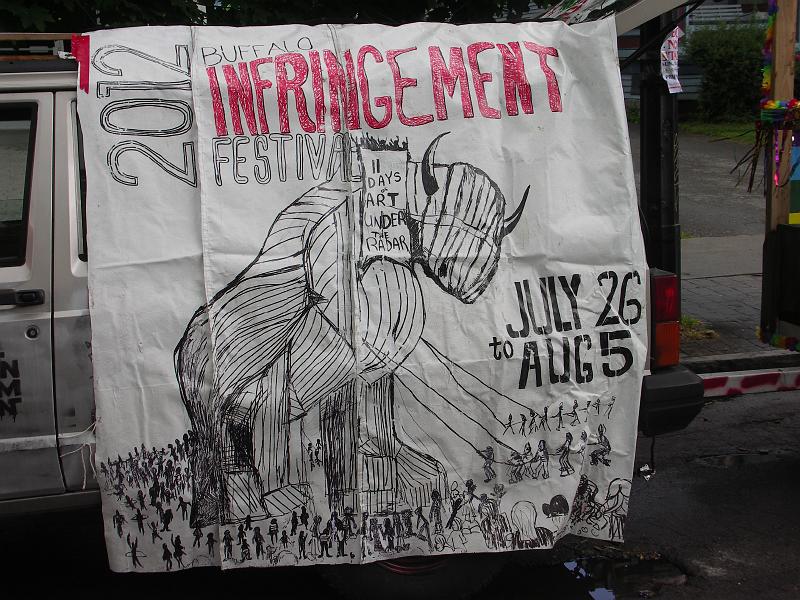 2012
BUFFALO
INFRINGEMENT
FESTIVAL
11
DAYS
OF
ART
UNDER
THE
RADAR
JULY 26
to AUG 5